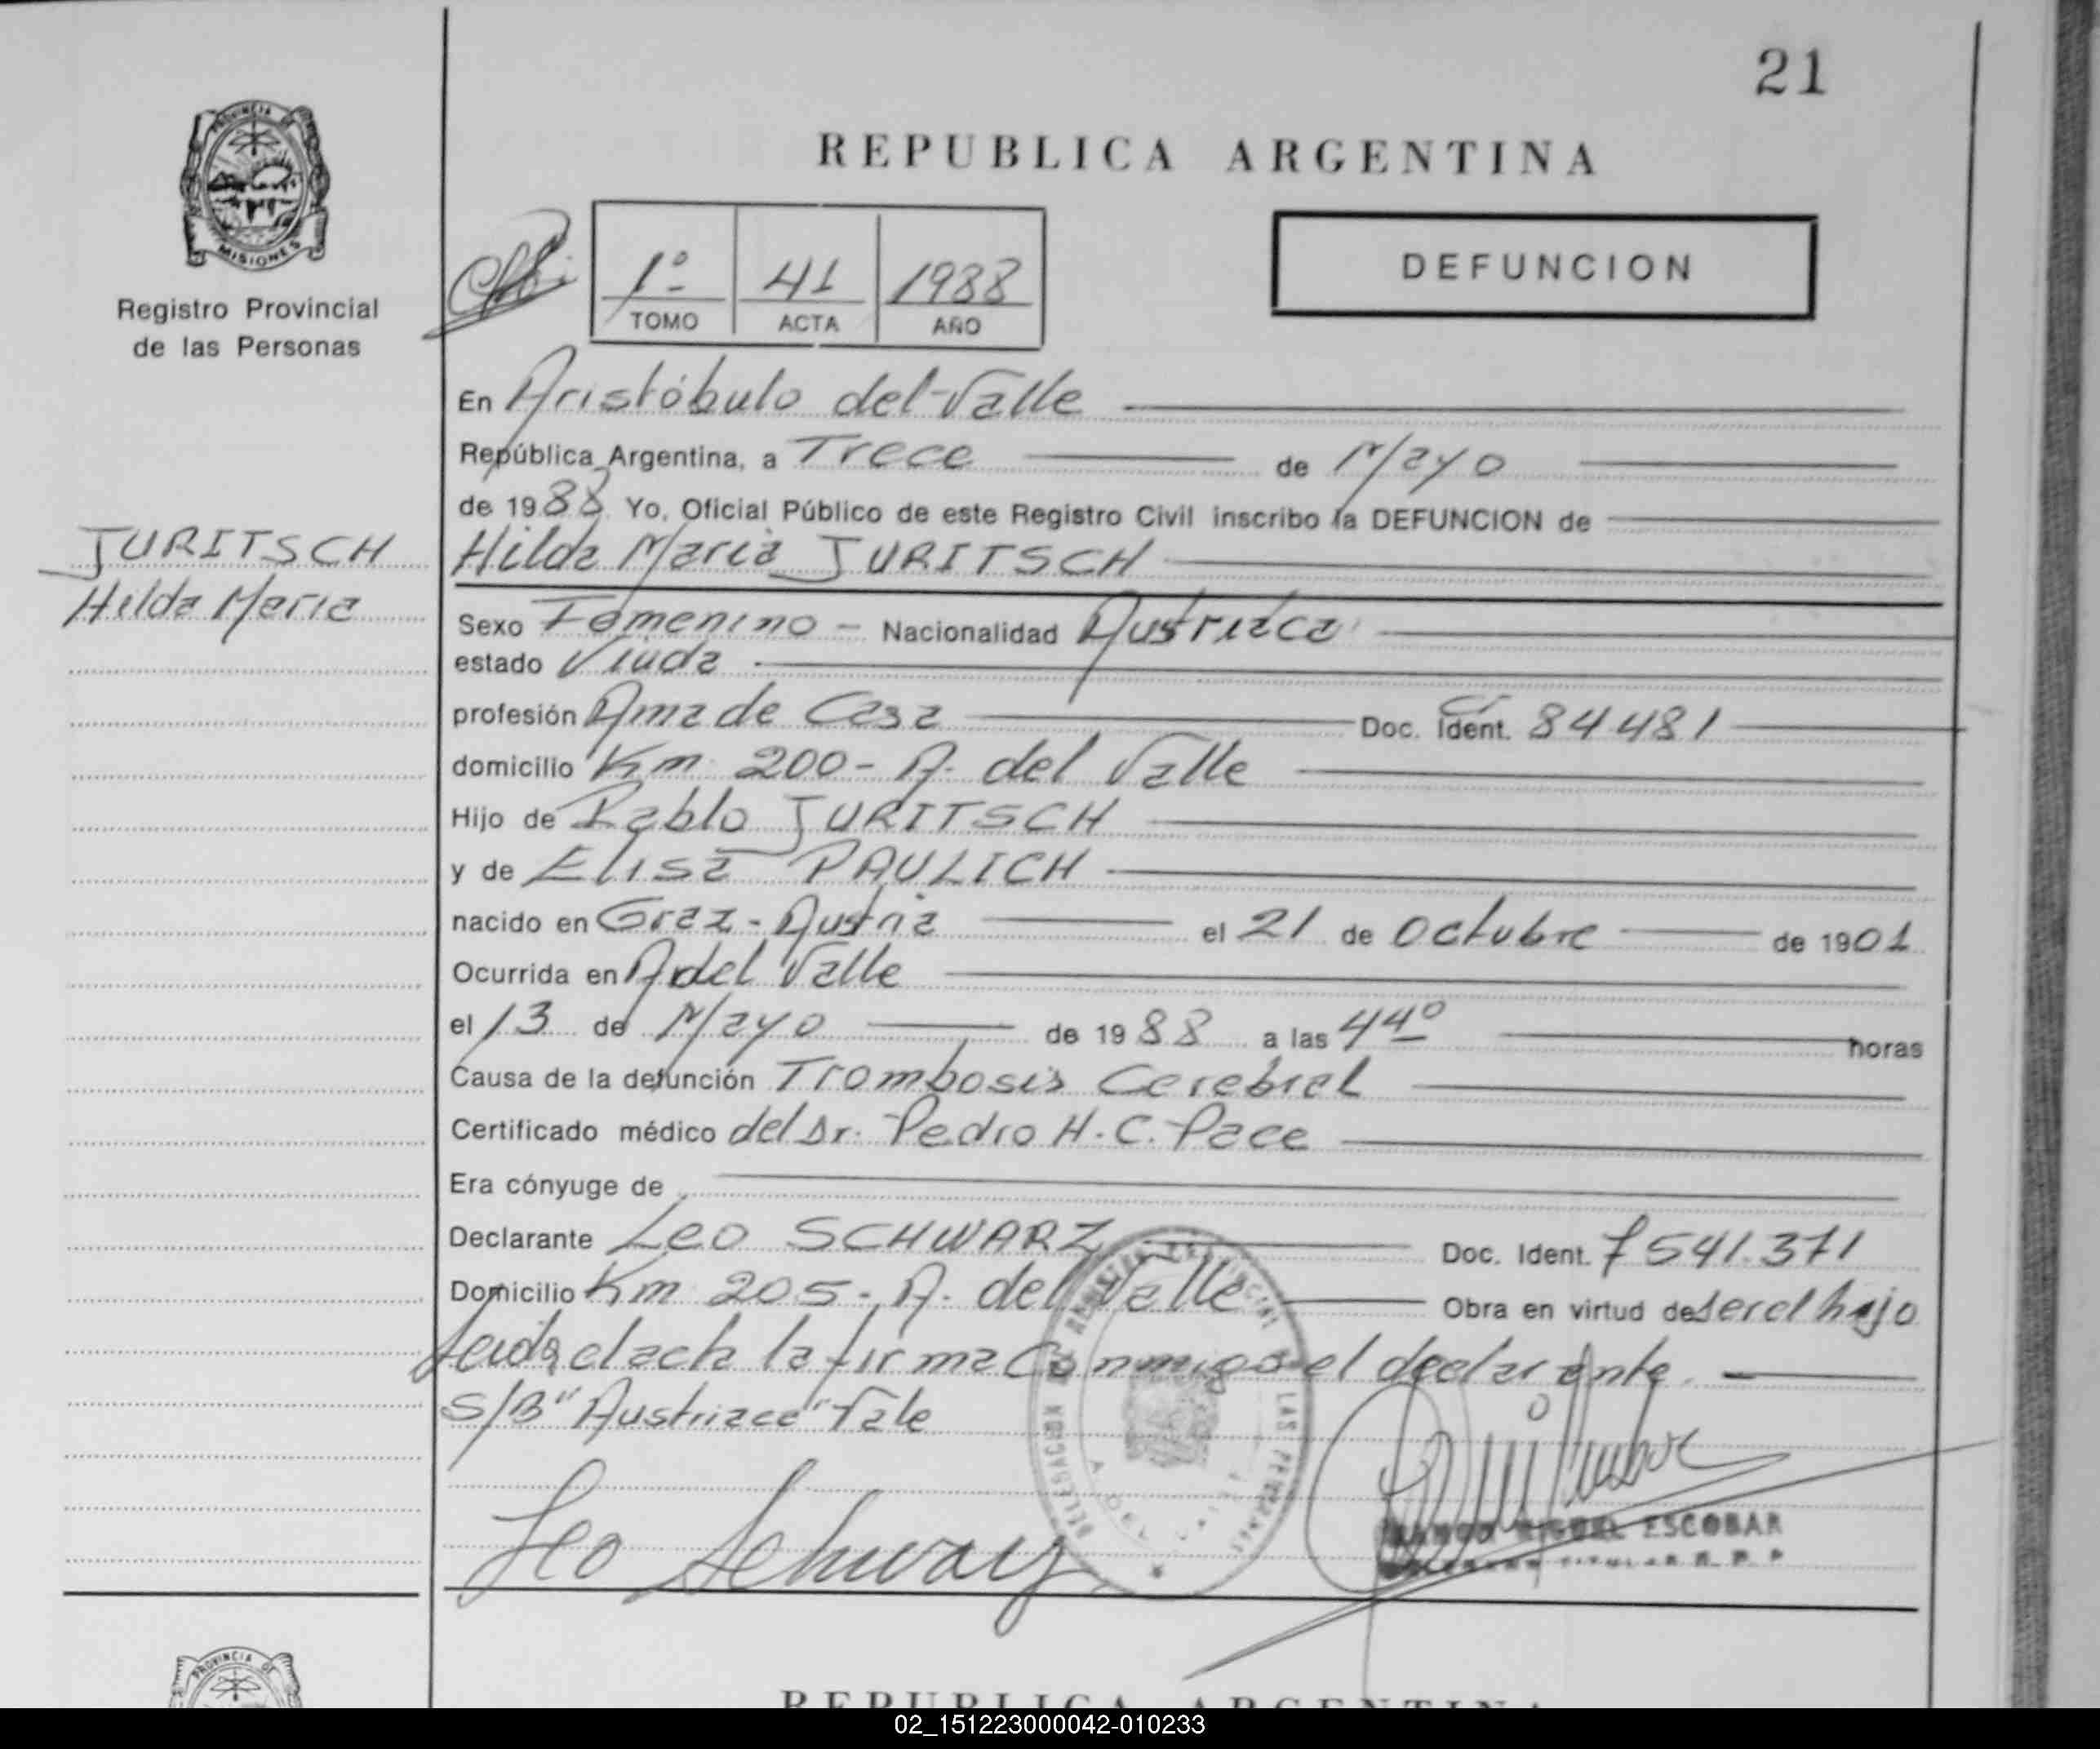 21
PROVINCIA DE
MISIONES
Registro Provincial
de las Personas
REPUBLICA ARGENTINA
1º TOMO 41 ACTA 1988 AÑO
DEFUNCION
JURITSCH
Hilda Maria
En Aristóbulo del Valle
República Argentina, a Trece de Mayo
de 1988 Yo, Oficial Público de este Registro Civil inscribo la DEFUNCION de
Hilda Maria JURITSCH
Sexo Femenino - Nacionalidad Austriaca
estado Viuda
profesión Ama de Casa Doc. Ident. CI 84481
domicilio Km 200 - A. del Valle
Hijo de Pablo JURITSCH
y de Elisa PAULICH
nacido en Graz - Austria el 21 de Octubre de 1901
Ocurrida en A del Valle
el 13 de Mayo de 1988 a las 44º horas
Causa de la defunción Trombosis Cerebral
Certificado médico del Dr. Pedro H. C. Pace
Era cónyuge de
Declarante Leo SCHWARZ Doc. Ident. 7541.371
Domicilio Km 205 - A. del Valle Obra en virtud de ser el hijo
Leida el acta la firma conmigo el declarante.
S/B "Austriaca" Vale
DELEGACION REGISTRO PROVINCIAL LAS PERSONAS
Leo Schwarz
ESCOBAR
PROVINCIA DE
REPUBLICA ARGENTINA
02_151223000042-010233